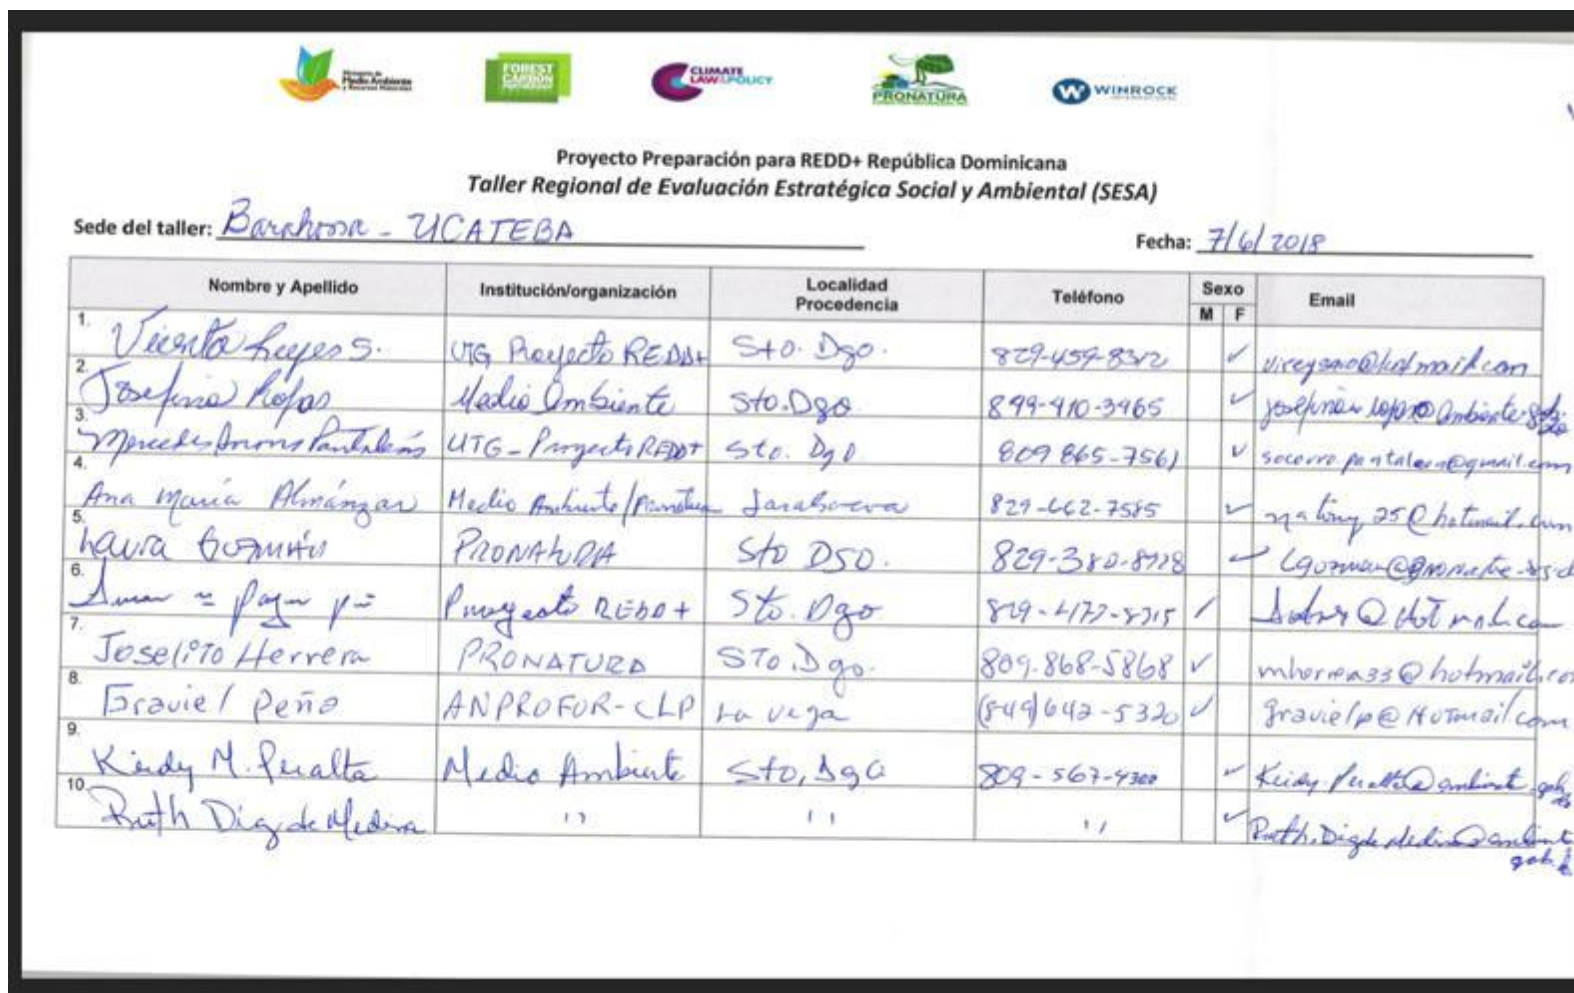 Ministerio de
Medio Ambiente
y Recursos Naturales
FOREST
CARBON
PARTNERSHIP
CLIMATE
LAW&POLICY
PRONATURA
W WINROCK
INTERNATIONAL
Proyecto Preparación para REDD+ República Dominicana
Taller Regional de Evaluación Estratégica Social y Ambiental (SESA)
Sede del taller: Barahona - UCATEBA
Fecha: 7/6/2018
Nombre y Apellido Institución/organización Localidad Procedencia Teléfono Sexo M F Email
1. Reyes S. UTG Proyecto REDD+ Sto. Dgo. 829-459-8312 ✓
2. Josefina Rojas Medio Ambiente Sto. Dgo 849-910-3965 ✓
3. Mercedes Pantaleón UTG-Proyecto REDD+ Sto. Dgo 809 865-7561 ✓ socorro.pantaleon@gmail.com
4. Ana María Almánzar Medio Ambiente/Pronatura Jarabacoa 829-662-7585 ✓
5. Laura Guzmán PRONATURA Sto DGO. 829-380-8728 ✓
6. Proyecto REDD+ Sto. Dgo
7. Joselito Herrera PRONATURA STo. Dgo. 809-868-5868 ✓ mherrera33@hotmail.co
8. Graviel Peña ANPROFOR-CLP La vega (849)642-5320 ✓ gravielp@Hotmail.com
9. Keidy M. Peralta Medio Ambiente Sto, Dgo 809-567-4300 ✓ Keidy.Peralta@ambiente.gob.do
10. Ruth Diaz de Medina '' '' '' ✓